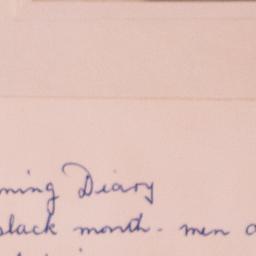 ning Diary
slack month - men